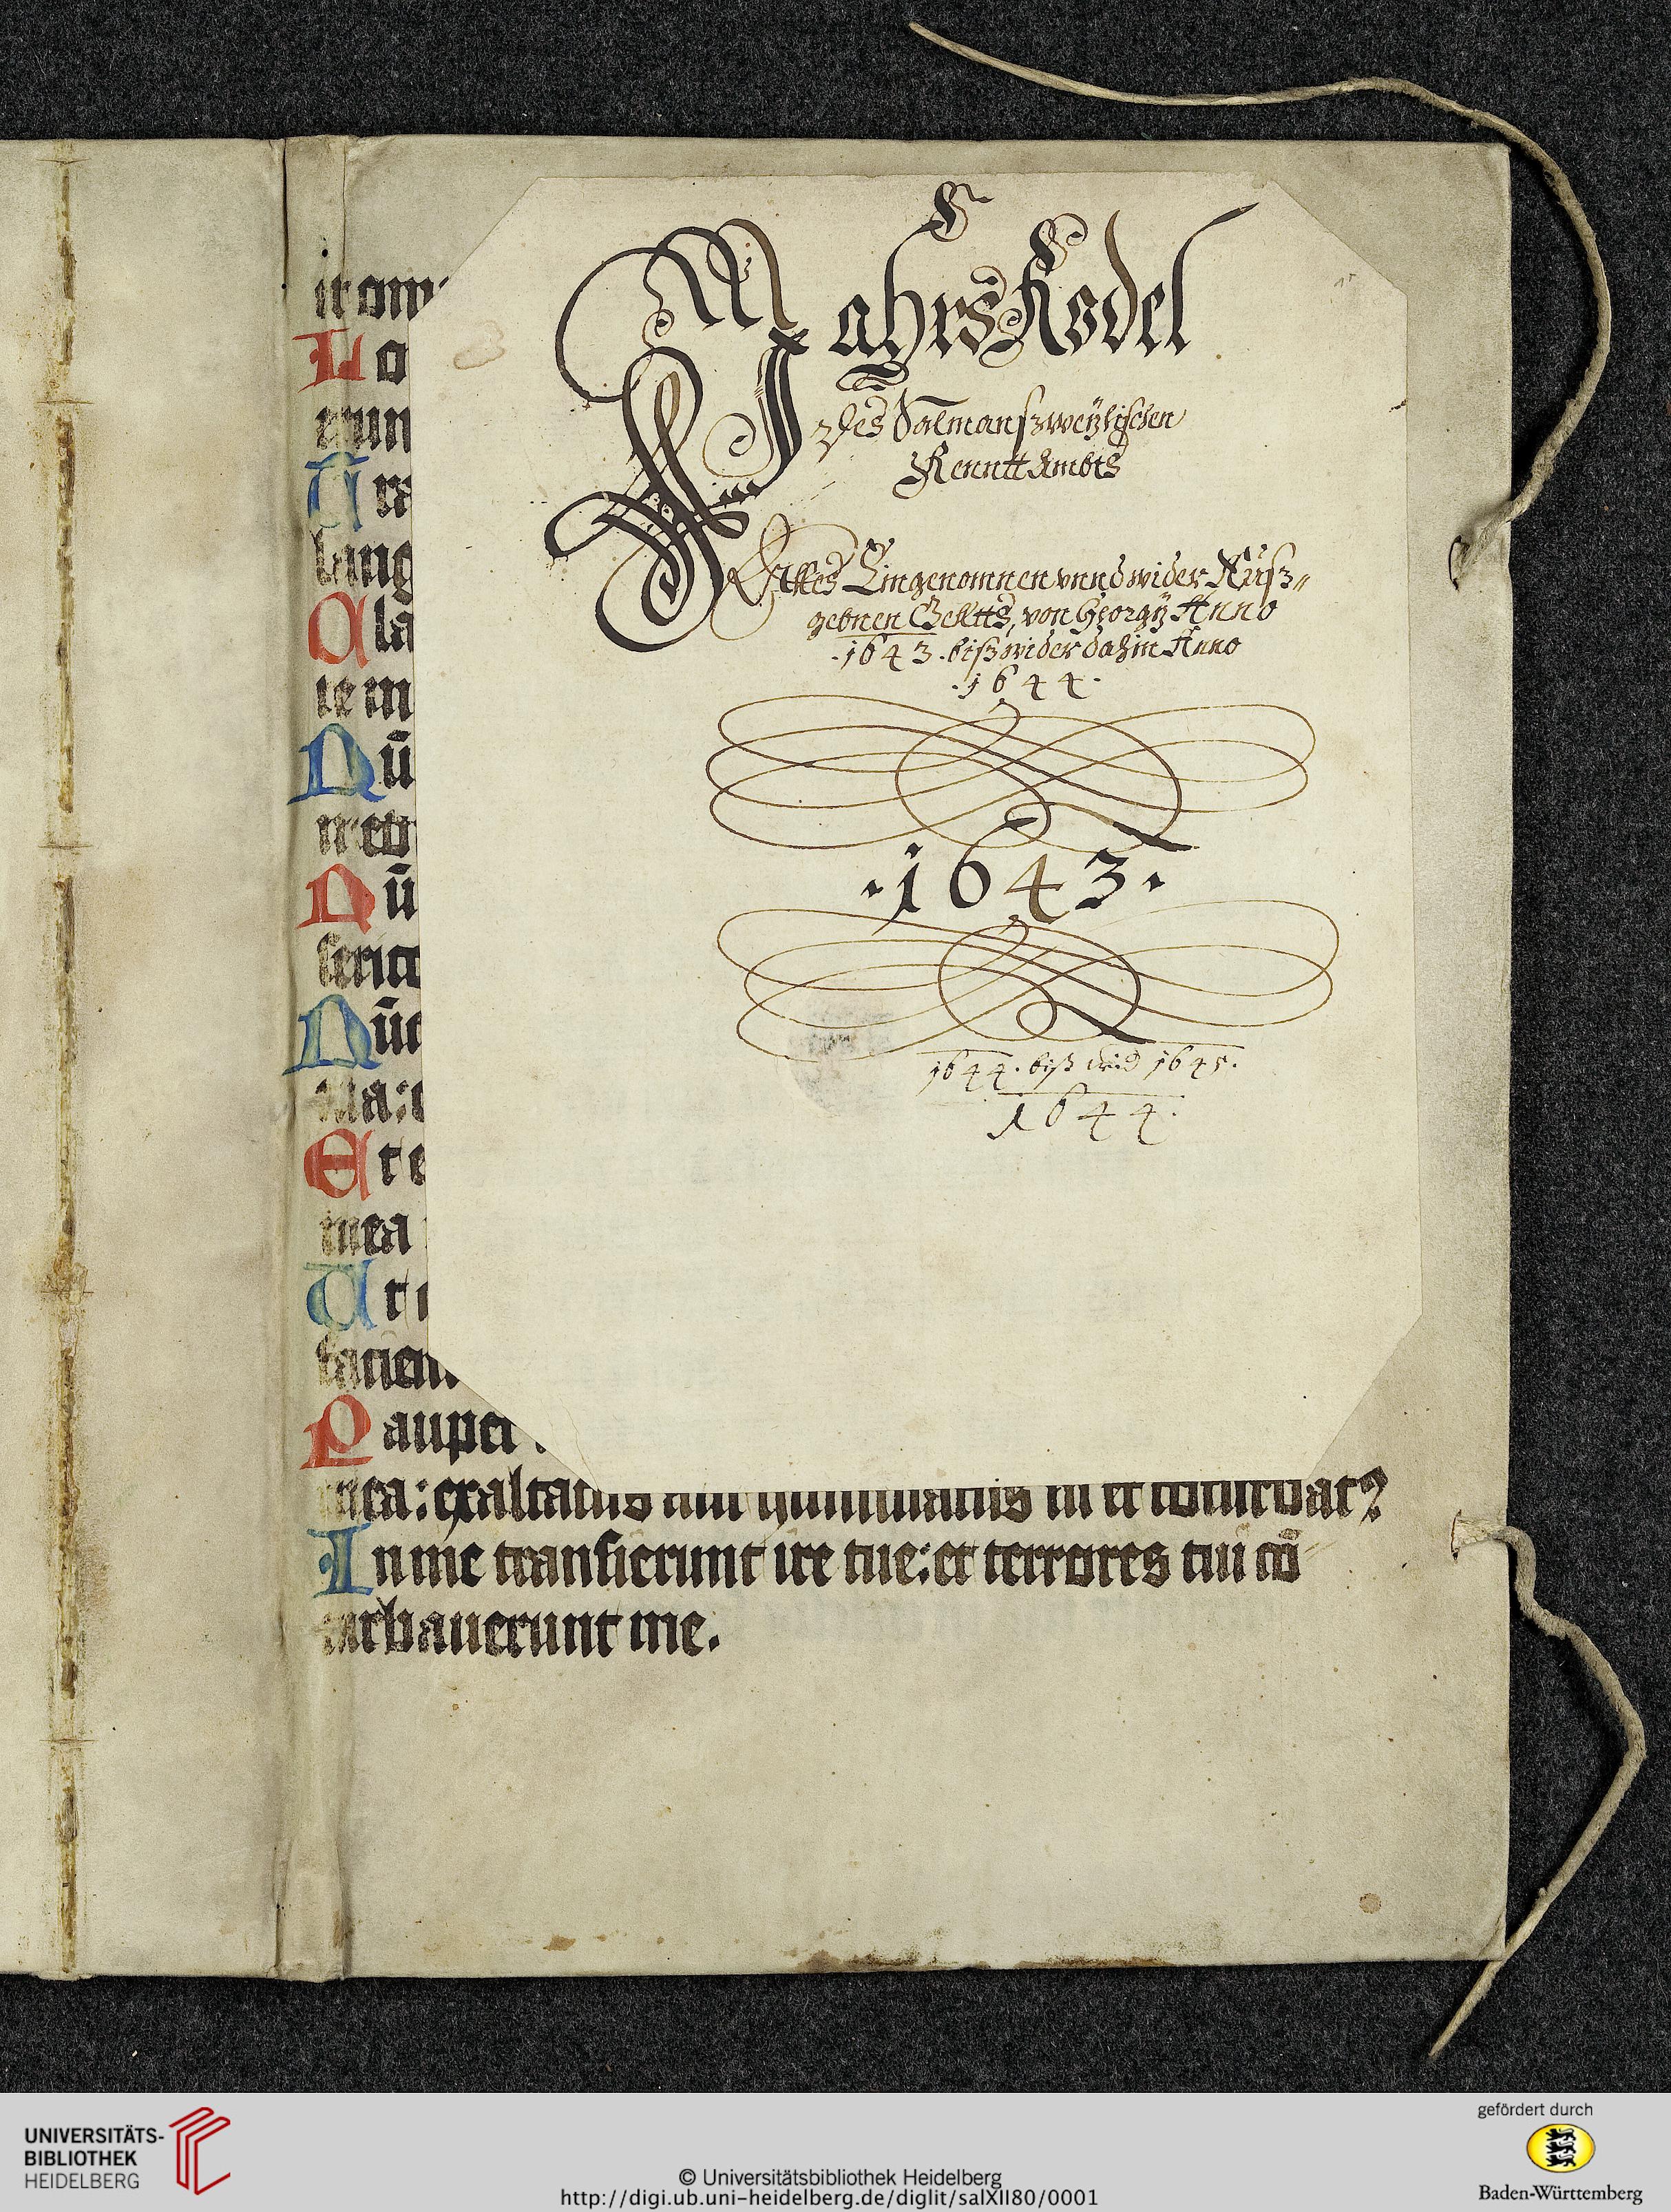 Jahrs Rodel
Des Salmanßweÿlischen
Renntt Ambts
Alles Eingenomnen vnnd wider Auß-
gebnen Gelltts, von Georgÿ Anno
.1643. biß wider dahin Anno
.1644.
.1643.
1644. biß wid 1645.
1644.
La
mun
lang
Ala
iem
Nū
Nū
Nūc
Et e
mea
Ut
facien
Pauper
mea: exaltatus aut humiliatus sū et cōturbat9
In me transierunt ire tue: et terrores tui cō
turbauerunt me.
UNIVERSITÄTS-
BIBLIOTHEK
HEIDELBERG
© Universitätsbibliothek Heidelberg
http://digi.ub.uni-heidelberg.de/diglit/salXII80/0001
gefördert durch
Baden-Württemberg